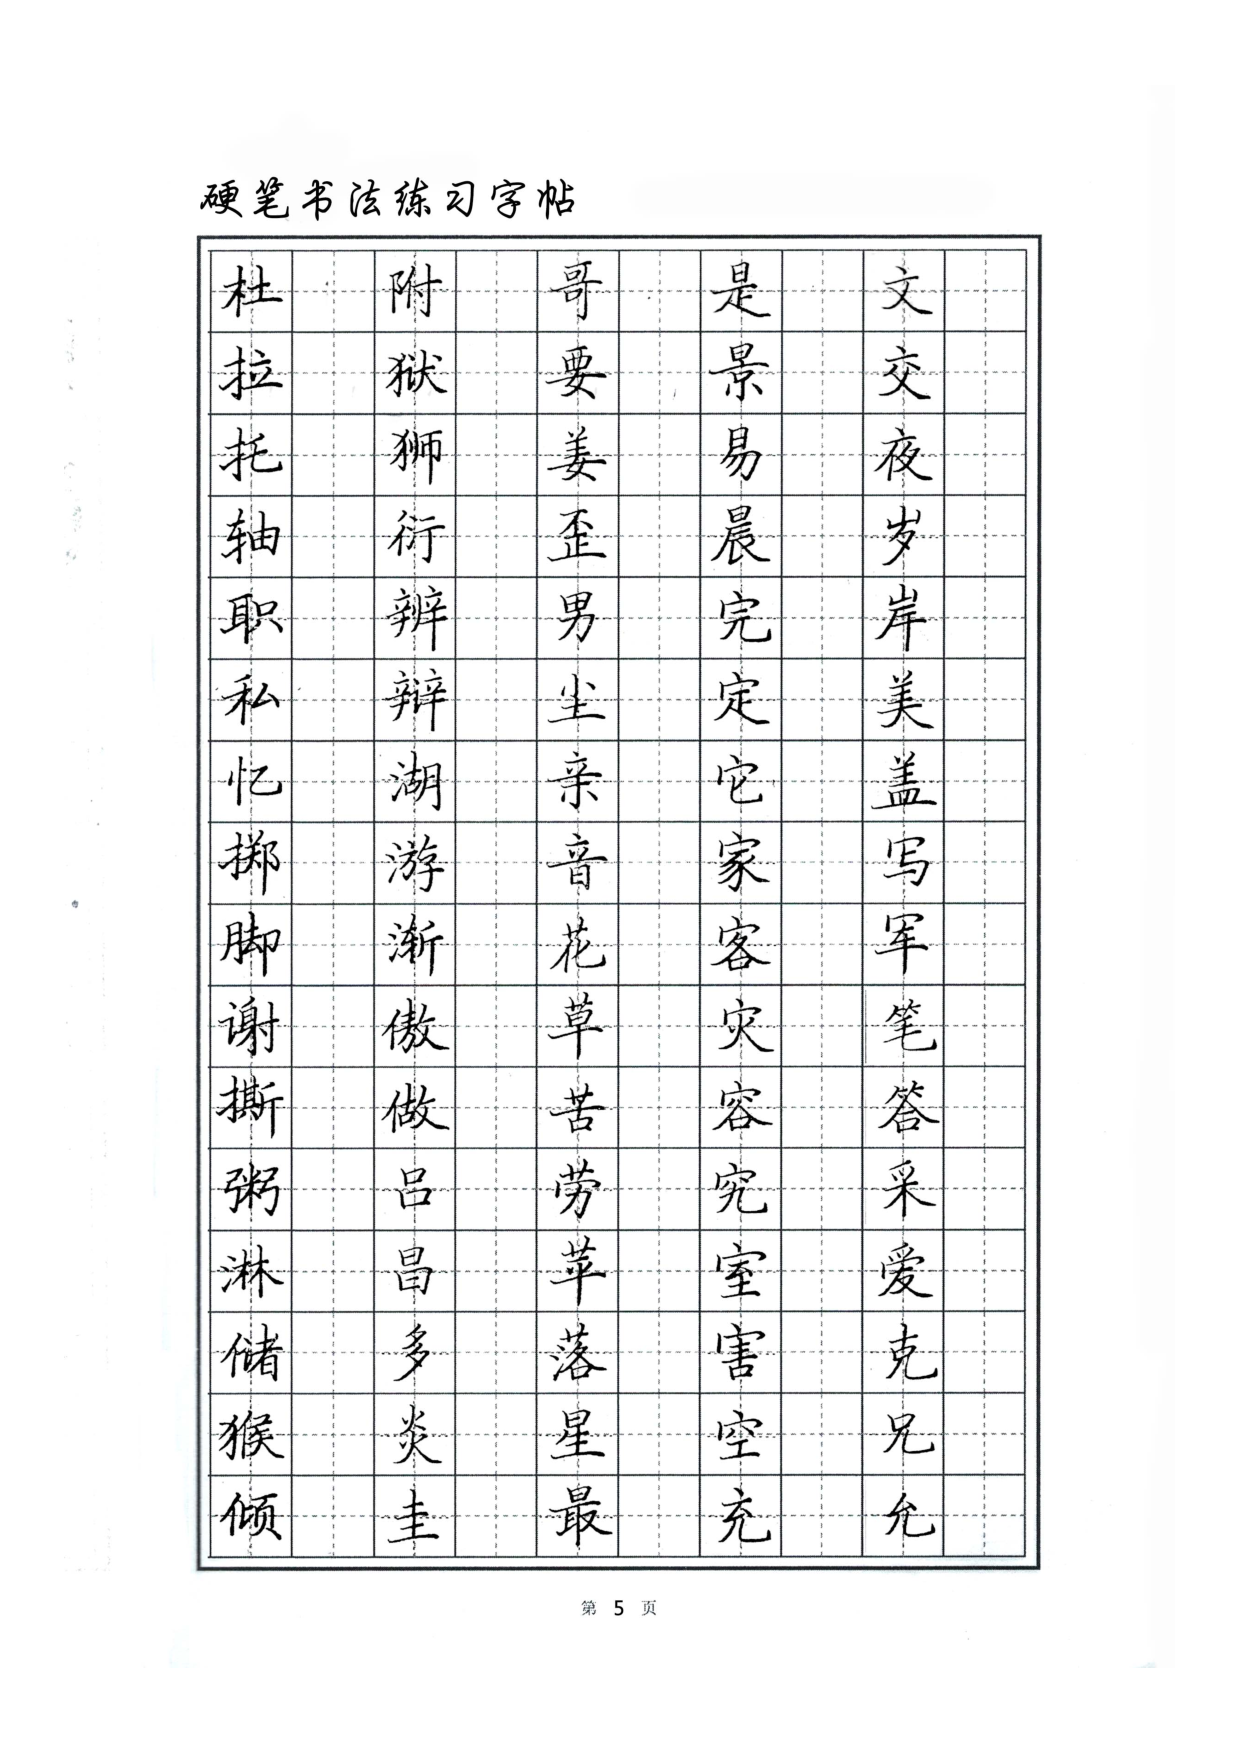 硬笔书法练习字帖
杜 附 哥 是 文
拉 狱 要 景 交
托 狮 姜 易 夜
轴 衍 歪 晨 岁
职 辨 男 完 岸
私 辩 尘 定 美
忆 湖 亲 它 盖
掷 游 音 家 写
脚 渐 花 客 军
谢 傲 草 灾 笔
撕 做 苦 容 答
粥 吕 劳 究 采
淋 昌 苹 室 爱
储 多 落 害 克
猴 炎 星 空 兄
倾 圭 最 充 允
第 5 页